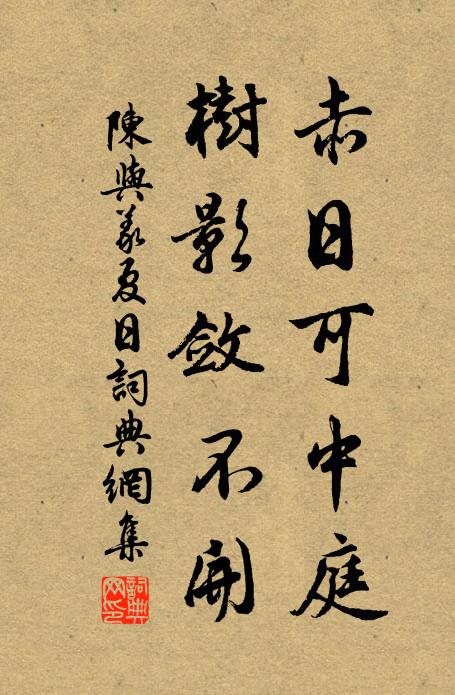 赤日可中庭
樹影斂不開
陳與義夏日詞典網集
詞典网印